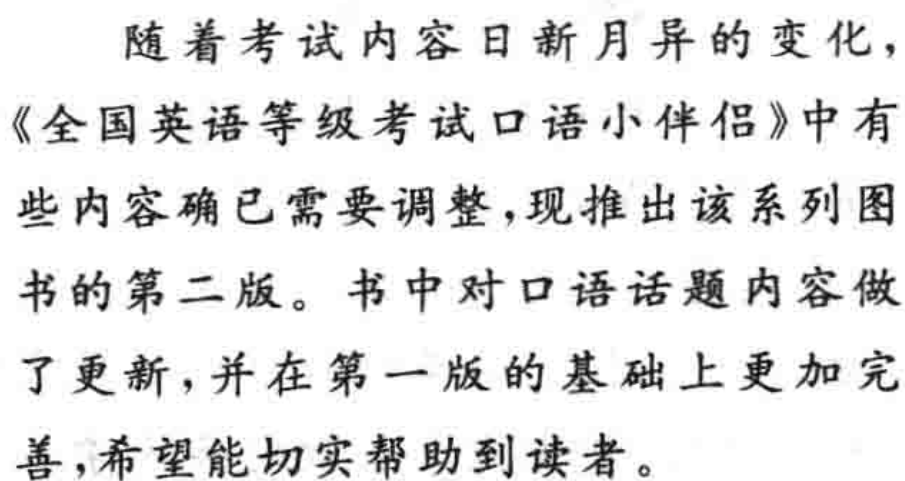 随着考试内容日新月异的变化，
《全国英语等级考试口语小伴侣》中有
些内容确已需要调整，现推出该系列图
书的第二版。书中对口语话题内容做
了更新，并在第一版的基础上更加完
善，希望能切实帮助到读者。